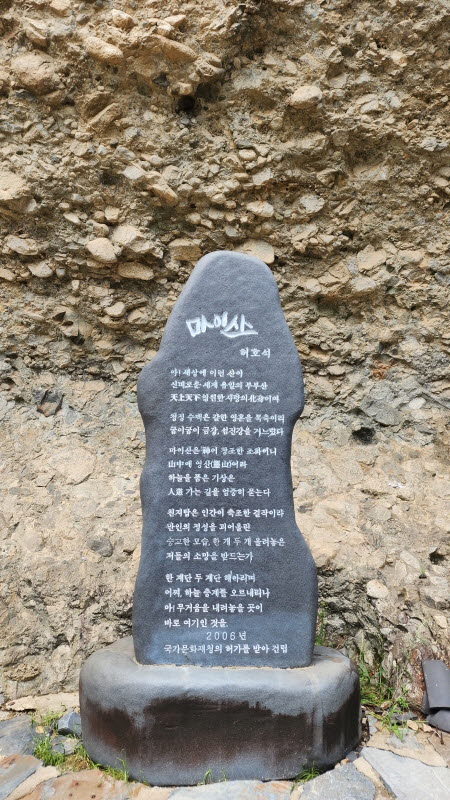 마이산
허호석
아! 세상에 이런 산이
신비로운 세계 유일의 부부산
天上天下 영원한 사랑의 化身이여
청정 수맥은 갈한 영혼을 목축이리
굽이굽이 금강, 섬진강을 거느렸다
마이산은 神이 창조한 조화이니
山中에 영산(靈山)이라
하늘을 품은 기상은
人道 가는 길을 엄중히 묻는다
원계탑은 인간이 축조한 걸작이라
만인의 정성을 괴어올린
숭고한 모습, 한 개 두 개 올려놓은
저들의 소망을 받드는가
한 계단 두 계단 헤아리며
어찌, 하늘 층계를 오르내리나
아! 무거움을 내려놓을 곳이
바로 여기인 것을.
2006년
국가문화재청의 허가를 받아 건립